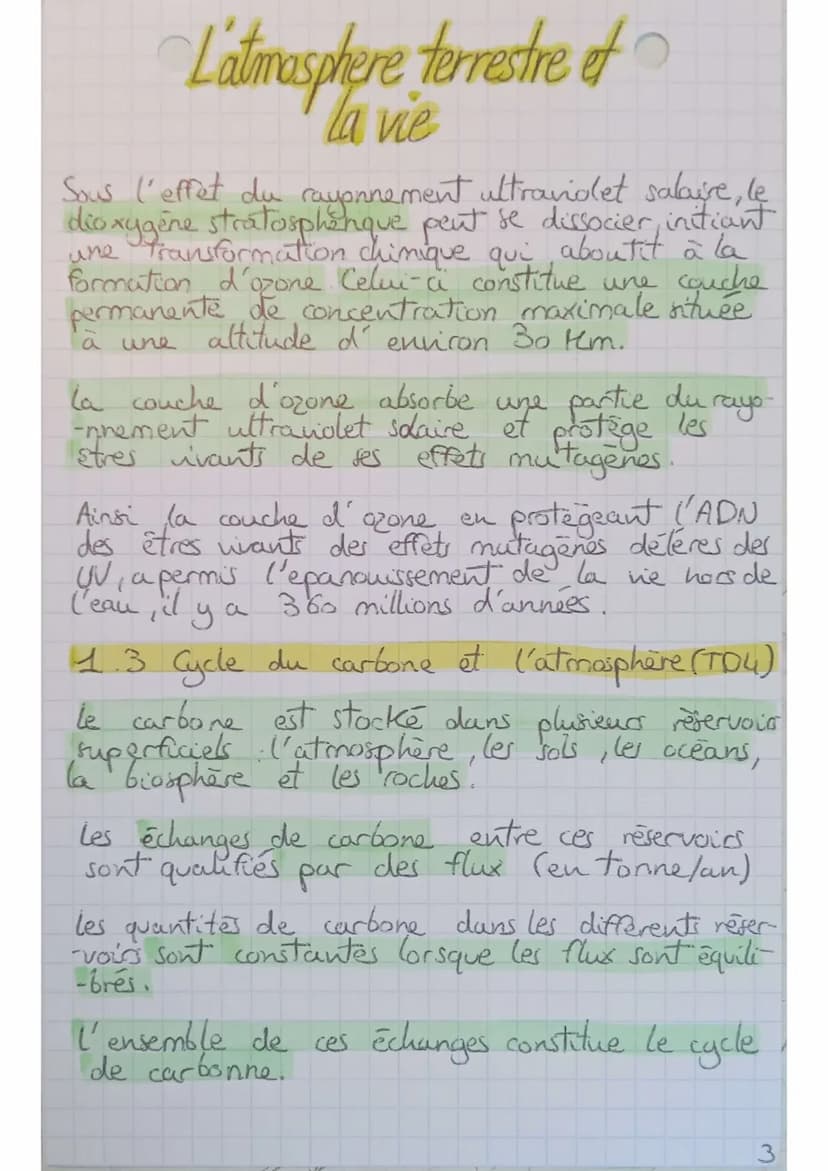 L'atmosphere terrestre et
la vie
Sous l'effet du rayonnement ultraviolet salaire, le
dioxygène stratosphérique peut se dissocier, initiant
une transformation chimique qui aboutit à la
formation d'ozone. Celui-ci constitue une couche
permanente de concentration maximale située
à une altitude d'environ 30 Km.
La couche d'ozone absorbe une partie du rayo-
-nnement ultraviolet solaire et protège les
êtres vivants de ses effets mutagènes.
Ainsi la couche d'ozone en protégeant l'ADN
des êtres vivants des effets mutagènes délères des
UV, a permis l'epanouissement de la vie hors de
l'eau, il y a 360 millions d'années.
1.3 Cycle du carbone et l'atmosphère (TD4)
Le carbone est stocké dans plusieurs réservoirs
superficiels : l'atmosphère, les sols, les océans,
la biosphère et les roches.
Les échanges de carbone entre ces réservoirs
sont qualifiés par des flux (en tonne/an)
Les quantités de carbone dans les différents réser-
-voirs sont constantes lorsque les flux sont équili-
-brés.
L'ensemble de ces échanges constitue le cycle
de carbonne.
3